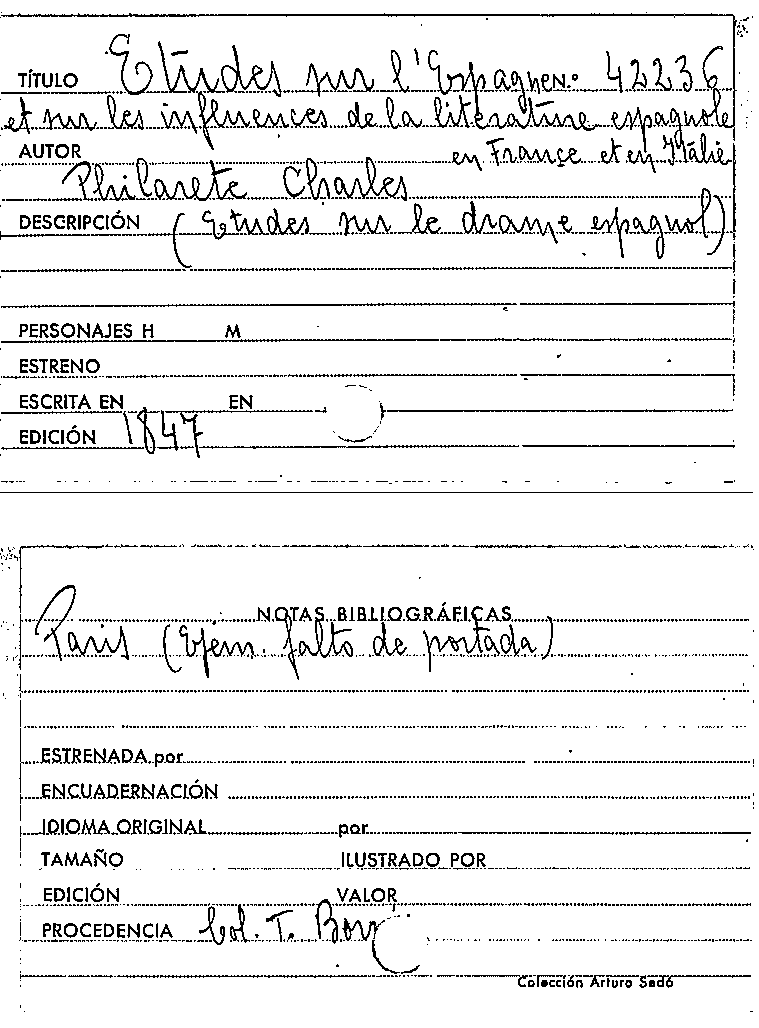 TÍTULO Etudes sur l'Espagne N.º 42236
et sur les influences de la literature espagnole
AUTOR en France et en Italie
Philarete Charles
DESCRIPCIÓN (Etudes sur le drame espagnol)
PERSONAJES H M
ESTRENO
ESCRITA EN EN
EDICIÓN 1847
NOTAS BIBLIOGRÁFICAS
Paris (Ejem. falto de portada)
ESTRENADA por
ENCUADERNACIÓN
IDIOMA ORIGINAL por
TAMAÑO ILUSTRADO POR
EDICIÓN VALOR
PROCEDENCIA Col. T.
Colección Arturo Sedó